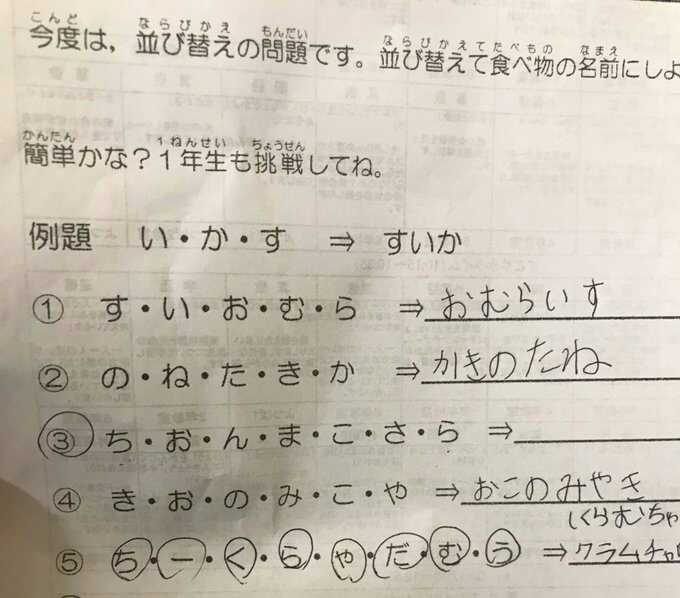 こんど ならびかえ もんだい ならびかえてたべもの なまえ
今度は，並び替えの問題です。並び替えて食べ物の名前にしよ
かんたん 1ねんせい ちょうせん
簡単かな？1年生も挑戦してね。
例題 い・か・す ⇒ すいか
① す・い・お・む・ら ⇒ おむらいす
② の・ね・た・き・か ⇒ かきのたね
③ ち・お・ん・ま・こ・さ・ら ⇒
④ き・お・の・み・こ・や ⇒ おこのみやき
くらむちゃ
⑤ ち・ー・く・ら・や・だ・む・う ⇒ クラムチャ